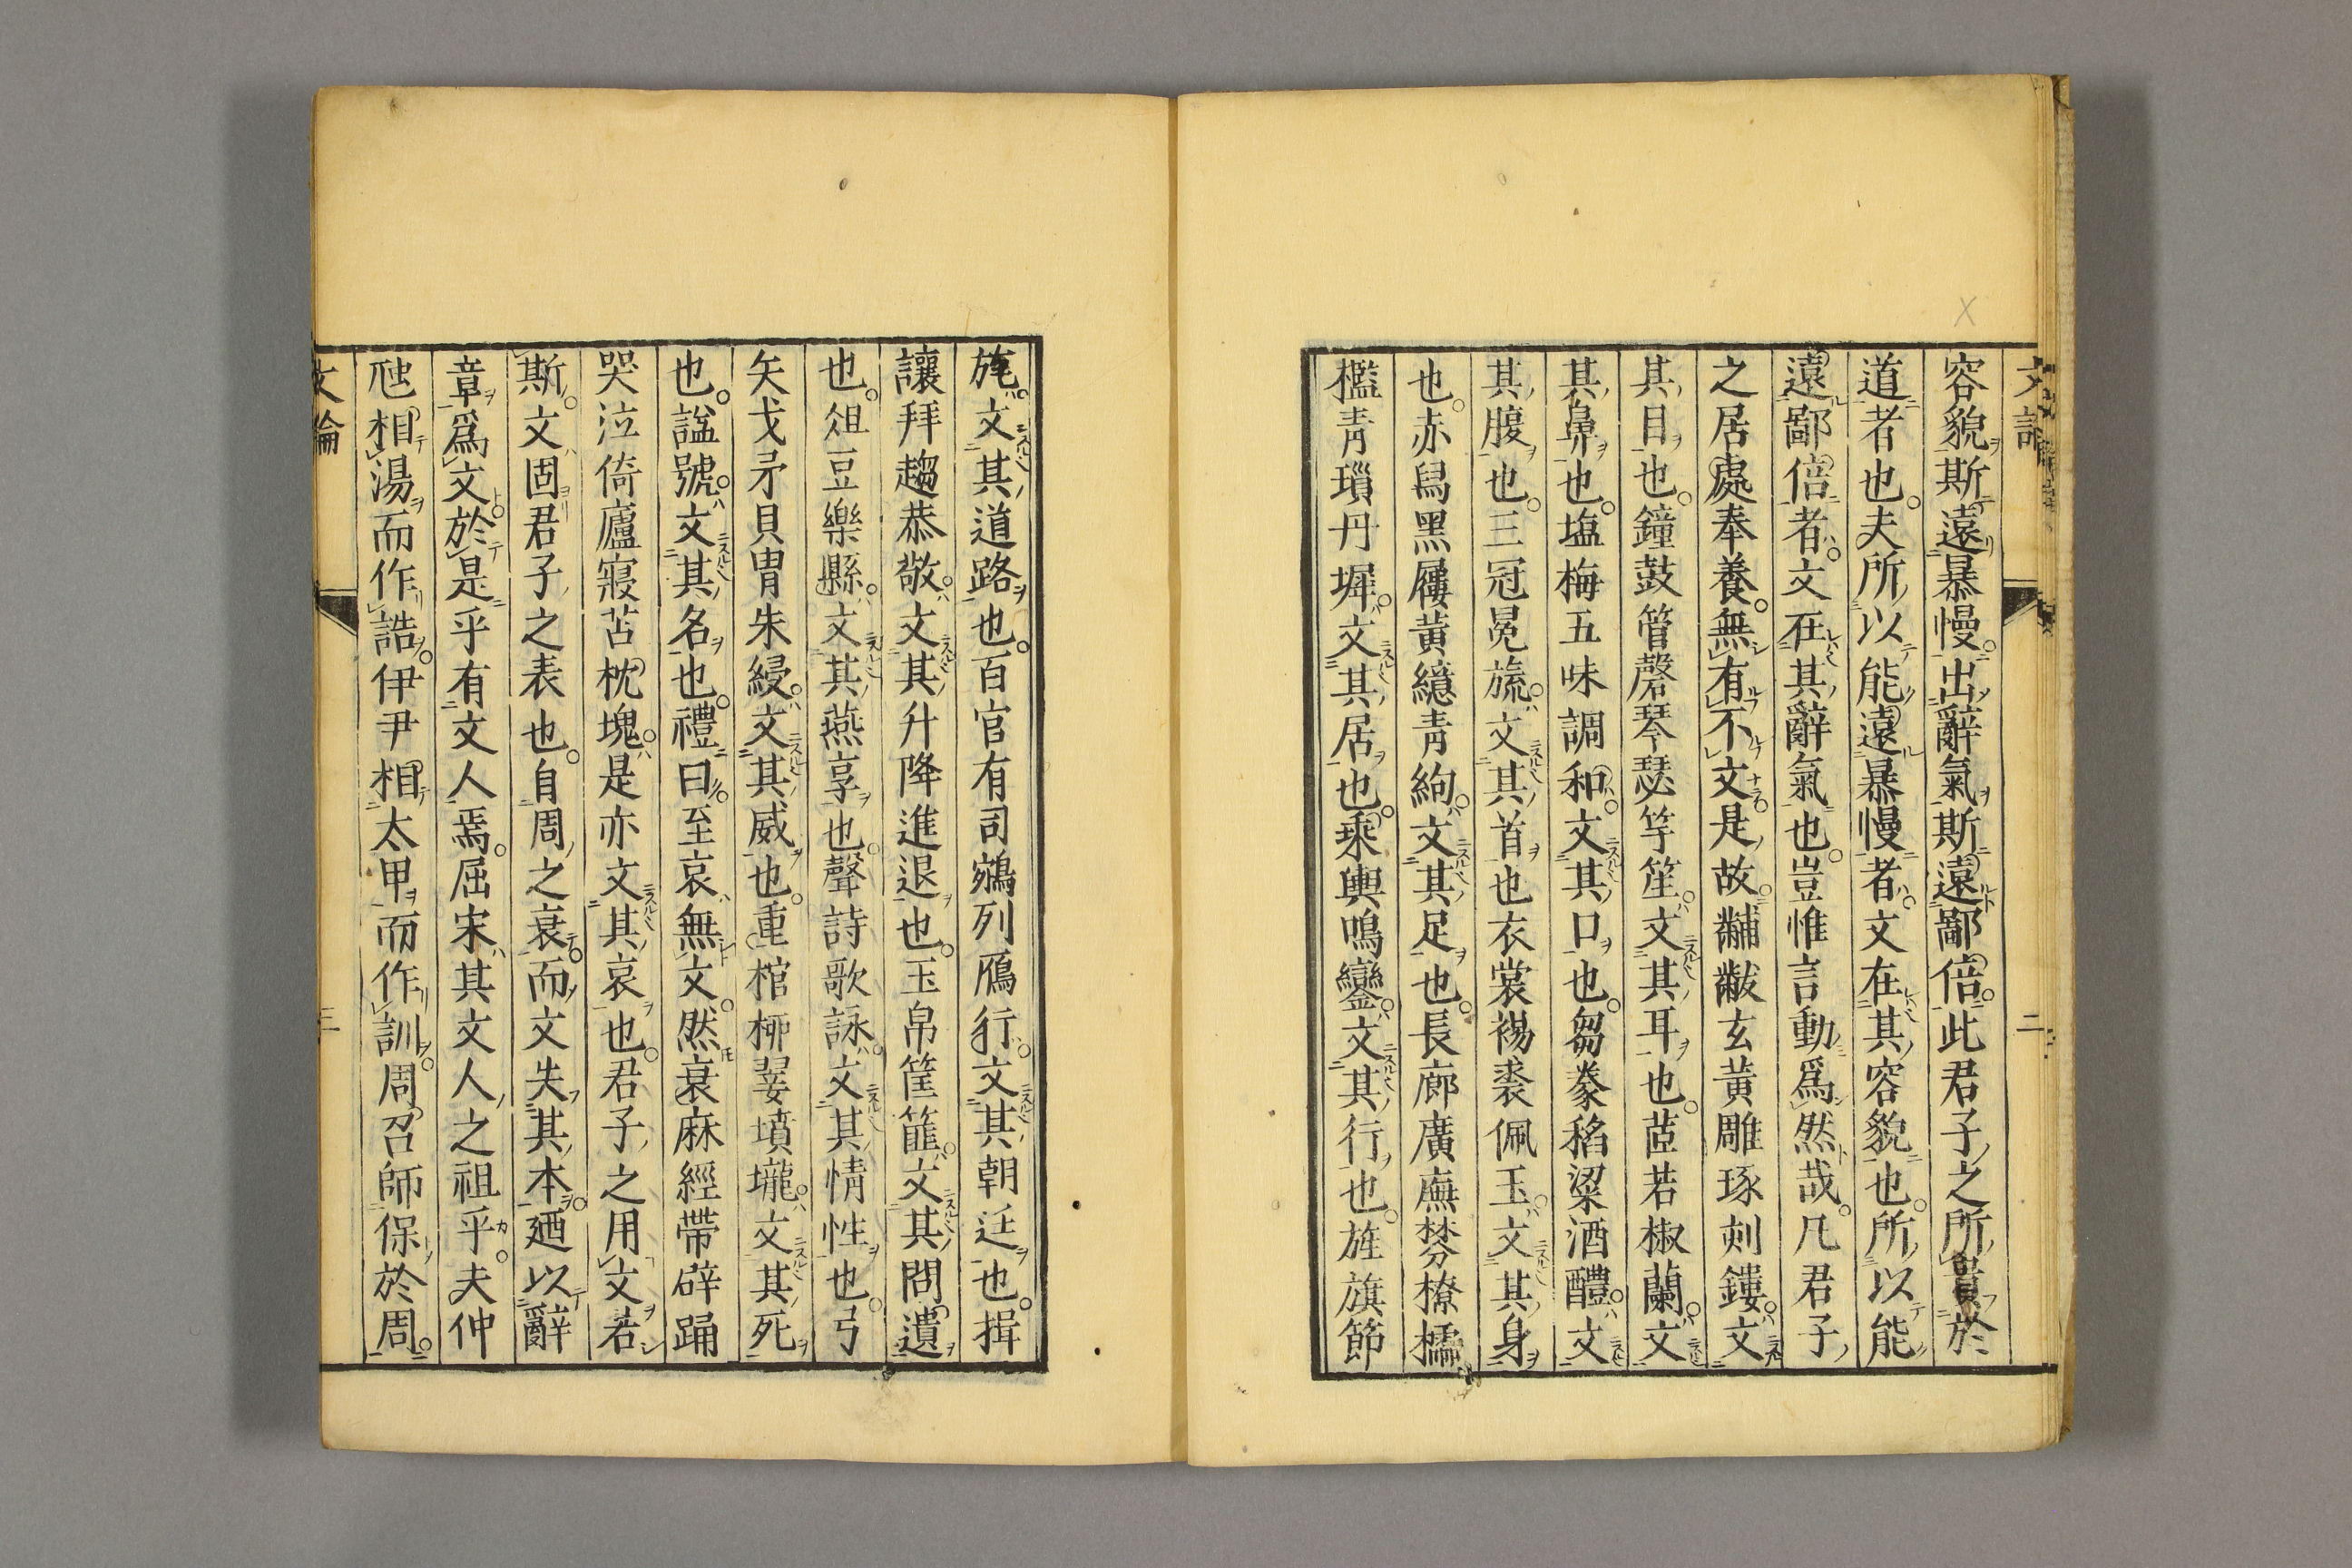 容貌斯遠暴慢出辭氣斯遠鄙倍此君子之所貴於
道者也夫所以能遠暴慢者文在其容貌也所以能
遠鄙倍者文在其辭氣也豈惟言動爲然哉凡君子
之居處奉養無有不文是故黼黻玄黃雕琢刻鏤文
其目也鐘鼓管磬琴瑟竽笙文其耳也茝若椒蘭文
其鼻也塩梅五味調和文其口也芻豢稻粱酒醴文
其腹也三冠冕旒文其首也衣裳裼裘佩玉文其身
也赤舄黑屨黃繶青絇文其足也長廊廣廡棼橑檽
檻青瑣丹墀文其居也乘輿鳴鑾文其行也旌旗節
旄文其道路也百官有司鵷列鴈行文其朝廷也揖
讓拜趨恭敬文其升降進退也玉帛筐篚文其問遺
也俎豆樂縣文其燕享也聲詩歌詠文其情性也弓
矢戈矛貝冑朱綅文其威也重棺槨翣墳壠文其死
也謚號文其名也禮曰至哀無文然衰麻絰帶辟踊
哭泣倚廬寢苫枕塊是亦文其哀也君子之用文若
斯文固君子之表也自周之衰而文失其本廼以辭
章爲文於是乎有文人焉屈宋其文人之祖乎夫仲
虺相湯而作誥伊尹相太甲而作訓周召師保於周
文論
二
文論
三